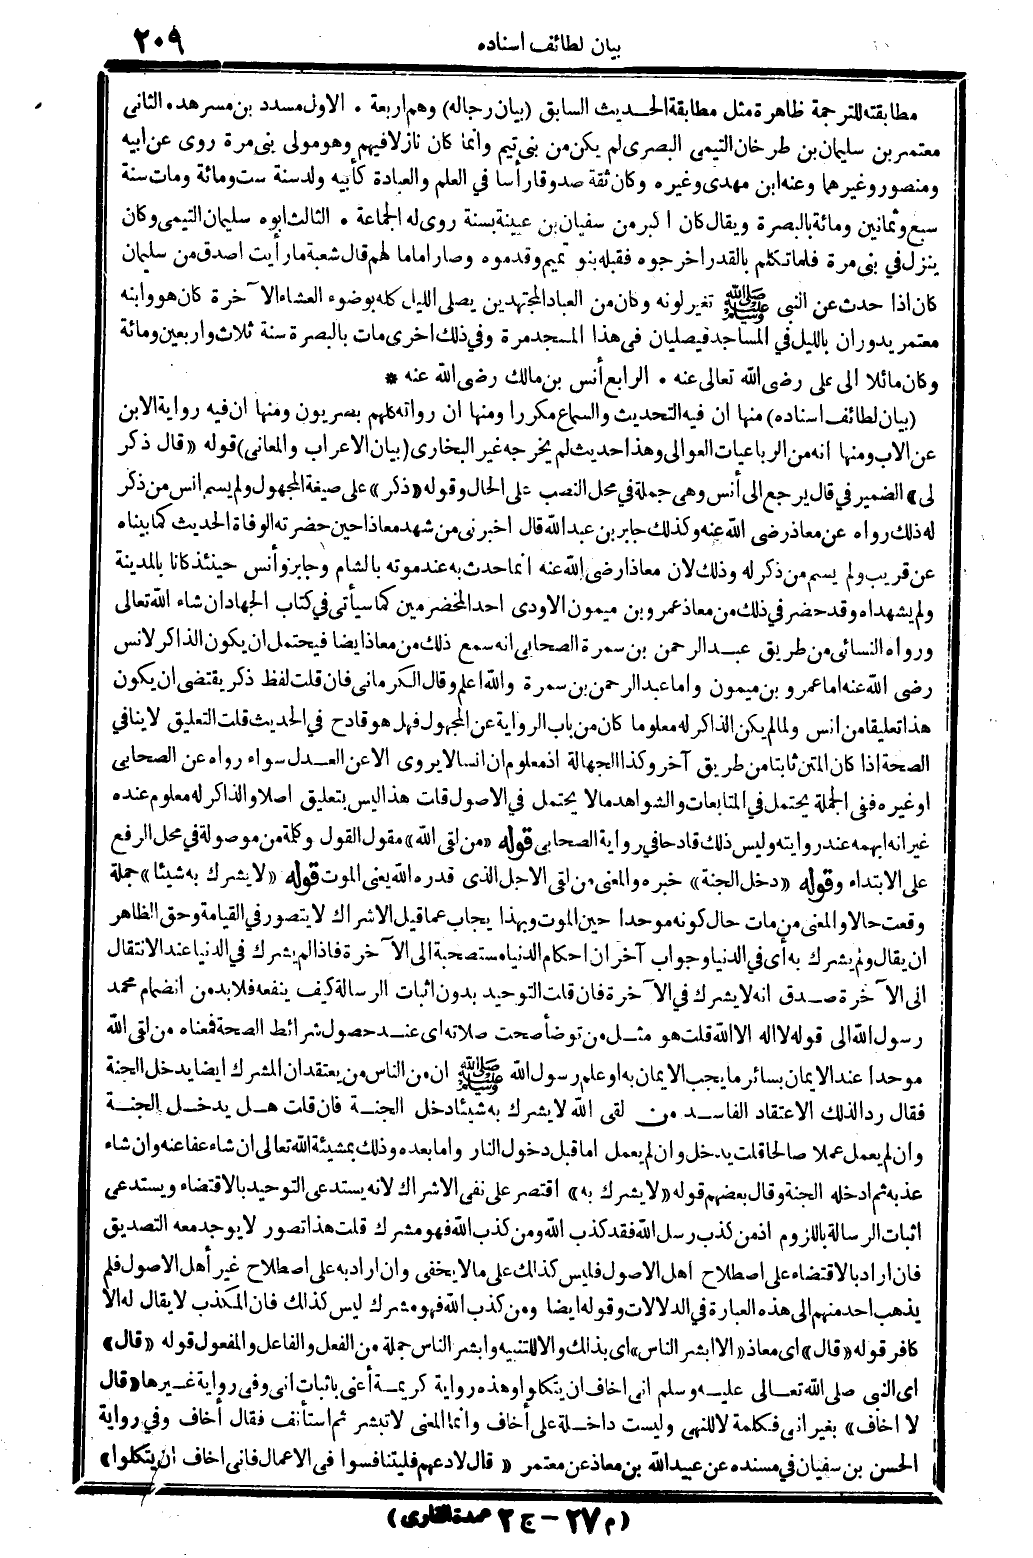 بيان لطائف اسناده ٢٠٩
مطابقته للترجمة ظاهرة مثل مطابقة الحديث السابق (بيان رجاله) وهم اربعة . الاول مسدد بن مسرهد . الثانى
معتمر بن سليمان بن طرخان التيمى البصرى لم يكن من بنى تيم وانما كان نازلا فيهم وهو مولى بنى مرة روى عن ابيه
ومنصور وغيرهما وعنه ابن مهدى وغيره وكان ثقة صدوقا رأسا في العلم والعبادة كأبيه ولد سنة ست ومائة ومات سنة
سبع وثمانين ومائة بالبصرة ويقال كان اكبر من سفيان بن عيينة بسنة روى له الجماعة . الثالث ابوه سليمان التيمى وكان
ينزل في بنى مرة فلما تكلم بالقدر اخرجوه فقبله بنو تميم وقدموه وصار اماما لهم قال شعبة ما رأيت اصدق من سليمان
كان اذا حدث عن النبى ﷺ تغير لونه وكان من العباد المجتهدين يصلى الليل كله بوضوء العشاء الآخرة كان هو وابنه
معتمر يدوران بالليل في المساجد فيصليان فى هذا المسجد مرة وفي ذلك اخرى مات بالبصرة سنة ثلاث واربعين ومائة
وكان مائلا الى على رضى الله تعالى عنه . الرابع أنس بن مالك رضى الله عنه *
(بيان لطائف اسناده) منها ان فيه التحديث والسماع مكررا ومنها ان رواته كلهم بصريون ومنها ان فيه رواية الابن
عن الاب ومنها انه من الرباعيات العوالى وهذا حديث لم يخرجه غير البخارى (بيان الاعراب والمعانى) قوله «قال ذكر
لى» الضمير في قال يرجع الى أنس وهى جملة في محل النصب على الحال وقوله «ذكر» على صيغة المجهول ولم يسم انس من ذكر
له ذلك رواه عن معاذ رضى الله عنه وكذلك جابر بن عبد الله قال اخبرنى من شهد معاذا حين حضرته الوفاة الحديث كما بيناه
عن قريب ولم يسم من ذكر له وذلك لان معاذا رضى الله عنه انما حدث به عند موته بالشام وجابر وأنس حينئذ كانا بالمدينة
ولم يشهداه وقد حضر في ذلك من معاذ عمرو بن ميمون الاودى احد المخضرمين كما سيأتى في كتاب الجهاد ان شاء الله تعالى
ورواه النسائى من طريق عبد الرحمن بن سمرة الصحابى انه سمع ذلك من معاذ ايضا فيحتمل ان يكون الذاكر لانس
رضى الله عنه اما عمرو بن ميمون واما عبد الرحمن بن سمرة والله اعلم وقال الكرمانى فان قلت لفظ ذكر يقتضى ان يكون
هذا تعليقا من انس ولما لم يكن الذاكر له معلوما كان من باب الرواية عن المجهول فهل هو قادح في الحديث قلت التعليق لا ينافى
الصحة اذا كان المتن ثابتا من طريق آخر وكذا الجهالة اذ معلوم ان انسا لا يروى الا عن العدل سواء رواه عن الصحابى
او غيره ففى الجملة يحتمل في المتابعات والشواهد ما لا يحتمل في الاصول قلت هذا ليس بتعليق اصلا والذاكر له معلوم عنده
غير انه ابهمه عند روايته وليس ذلك قادحا في رواية الصحابى قوله «من لقى الله» مقول القول وكلمة من موصولة في محل الرفع
على الابتداء وقوله «دخل الجنة» خبره والمعنى من لقى الاجل الذى قدره الله يعنى الموت قوله «لا يشرك به شيئا» جملة
وقعت حالا والمعنى من مات حال كونه موحدا حين الموت وبهذا يجاب عما قيل الاشراك لا يتصور في القيامة وحق الظاهر
ان يقال ولم يشرك به أى في الدنيا وجواب آخر ان احكام الدنيا مستصحبة الى الآخرة فاذا لم يشرك في الدنيا عند الانتقال
الى الآخرة صدق انه لا يشرك في الآخرة فان قلت التوحيد بدون اثبات الرسالة كيف ينفعه فلا بد من انضمام محمد
رسول الله الى قوله لا اله الا الله قلت هو مثل من توضأ صحت صلاته اى عند حصول شرائط الصحة فمعناه من لقى الله
موحدا عند الايمان بسائر ما يجب الايمان به او علم رسول الله ﷺ ان من الناس من يعتقد ان المشرك ايضا يدخل الجنة
فقال ردا لذلك الاعتقاد الفاسد من لقى الله لا يشرك به شيئا دخل الجنة فان قلت هل يدخل الجنة
وان لم يعمل عملا صالحا قلت يدخل وان لم يعمل اما قبل دخول النار واما بعده وذلك بمشيئة الله تعالى ان شاء عفا عنه وان شاء
عذبه ثم ادخله الجنة وقال بعضهم قوله «لا يشرك به» اقتصر على نفى الاشراك لانه يستدعى التوحيد بالاقتضاء ويستدعى
اثبات الرسالة باللزوم اذ من كذب رسل الله فقد كذب الله ومن كذب الله فهو مشرك قلت هذا تصور لا يوجد معه التصديق
فان اراد بالاقتضاء على اصطلاح اهل الاصول فليس كذلك على ما لا يخفى وان اراد به على اصطلاح غير أهل الاصول فلم
يذهب احد منهم الى هذه العبارة في الدلالات وقوله ايضا ومن كذب الله فهو مشرك ليس كذلك فان المكذب لا يقال له الا
كافر قوله «قال» اى معاذ «الا ابشر الناس» اى بذلك والا للتنبيه وابشر الناس جملة من الفعل والفاعل والمفعول قوله «قال»
اى النبى صلى الله تعالى عليه وسلم انى اخاف ان يتكلوا وهذه رواية كريمة أعنى باثبات انى وفى رواية غيرها «قال
لا اخاف» بغير انى فكلمة لا للنهى وليست داخلة على أخاف وانما المعنى لا تبشر ثم استأنف فقال أخاف وفي رواية
الحسن بن سفيان في مسنده عن عبيد الله بن معاذ عن معتمر «قال لا دعهم فليتنافسوا فى الاعمال فانى اخاف ان يتكلوا»
(م ٢٧ – ج ٢ عمدة القارى)